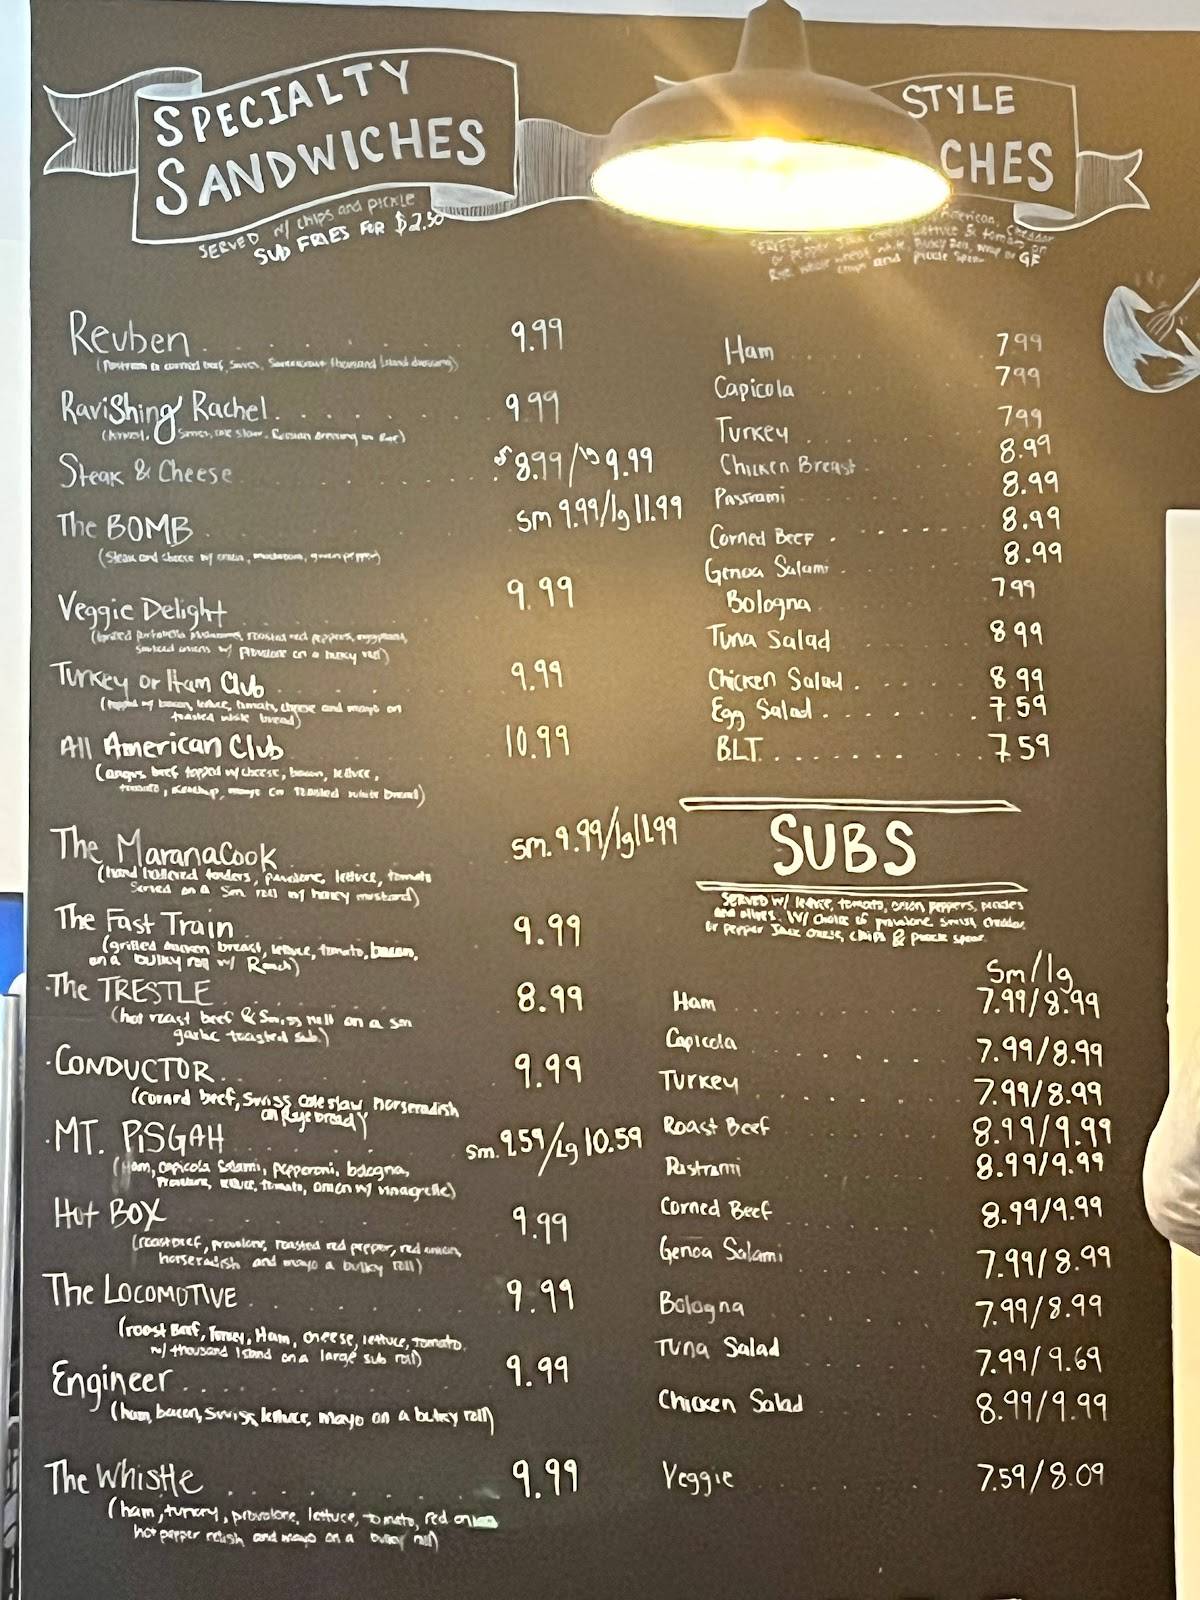 SPECIALTY
SANDWICHES
SERVED W/ CHIPS and PICKLE
SUB FRIES FOR $2.50
Reuben 9.99
(Pastrami or corned beef, Swiss, Sauerkraut thousand Island dressing)
Ravishing Rachel 9.99
Swiss, cole slaw, Russian dressing on Rye)
Steak & Cheese $8.99/19 9.99
The BOMB sm 9.99/lg 11.99
(Steak and cheese w/ onion, mushroom, green pepper)
Veggie Delight 9.99
(Grilled portabella mushrooms, roasted red peppers, eggplant,
onions w/ Provolone on a bulky roll)
Turkey or Ham Club 9.99
(topped w/ bacon, lettuce, tomato, cheese and mayo on
toasted white bread)
All American Club 10.99
(angus beef topped w/ cheese, bacon, lettuce,
tomato, ketchup, mayo on toasted white bread)
The Maranacook sm. 9.99/lg 11.99
(hand battered tenders, provolone, lettuce, tomato
Served on a sm. roll w/ honey mustard)
The Fast Train 9.99
(grilled chicken breast, lettuce, tomato, bacon,
on a bulky roll w/ Ranch)
The TRESTLE 8.99
(hot roast beef & Swiss melt on a sm
garlic toasted sub.)
CONDUCTOR 9.99
(corned beef, Swiss, cole slaw, horseradish
on Rye bread)
MT. PISGAH sm. 9.59/Lg 10.59
(Ham, capicola Salami, pepperoni, bologna,
Provolone, lettuce, tomato, onion w/ vinaigrette)
Hot BOX 9.99
(roast beef, provolone, roasted red pepper, red onion,
horseradish and mayo a bulky roll)
The LOCOMOTIVE 9.99
(roast Beef, Turkey, Ham, cheese, lettuce, tomato,
w/ thousand Island on a large sub roll)
Engineer 9.99
(ham, bacon, swiss, lettuce, mayo on a bulky roll)
The Whistle 9.99
(ham, turkey, provolone, lettuce, tomato, red onion
hot pepper relish and mayo on a bulky roll)
STYLE
CHES
SERVED American, Cheddar
or Pepper Jack Cheese, Lettuce & tomato on
Rye, whole wheat, white, Bulky Roll, wrap or GF
chips and pickle spear
Ham 7.99
Capicola 7.99
Turkey 7.99
Chicken Breast 8.99
Pastrami 8.99
Corned Beef 8.99
Genoa Salami 8.99
Bologna 7.99
Tuna Salad 8.99
Chicken Salad 8.99
Egg Salad 7.59
B.L.T. 7.59
SUBS
SERVED W/ lettuce, tomato, onion peppers, pickles
and olives. W/ Choice of provolone Swiss, Cheddar
or Pepper Jack Cheese, chips & pickle spear
Sm/lg
Ham 7.99/8.99
Capicola 7.99/8.99
Turkey 7.99/8.99
Roast Beef 8.99/9.99
Pastrami 8.99/9.99
Corned Beef 8.99/9.99
Genoa Salami 7.99/8.99
Bologna 7.99/8.99
Tuna Salad 7.99/9.69
Chicken Salad 8.99/9.99
Veggie 7.59/8.09